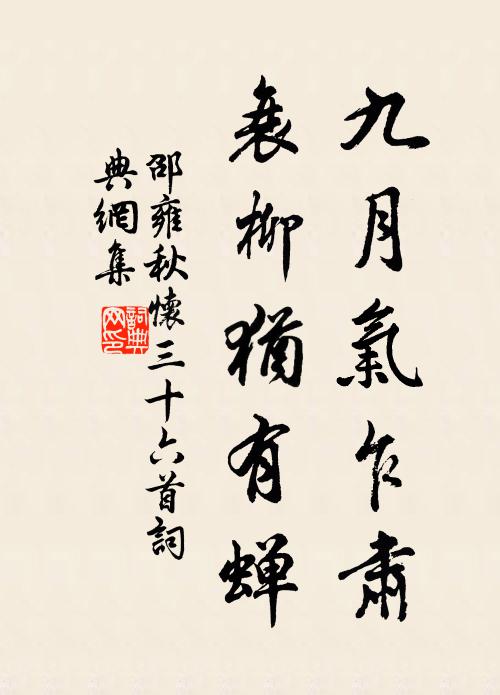 九月氣乍肅
衰柳猶有蝉
邵雍秋懷三十六首詞
典網集
詞典
网印